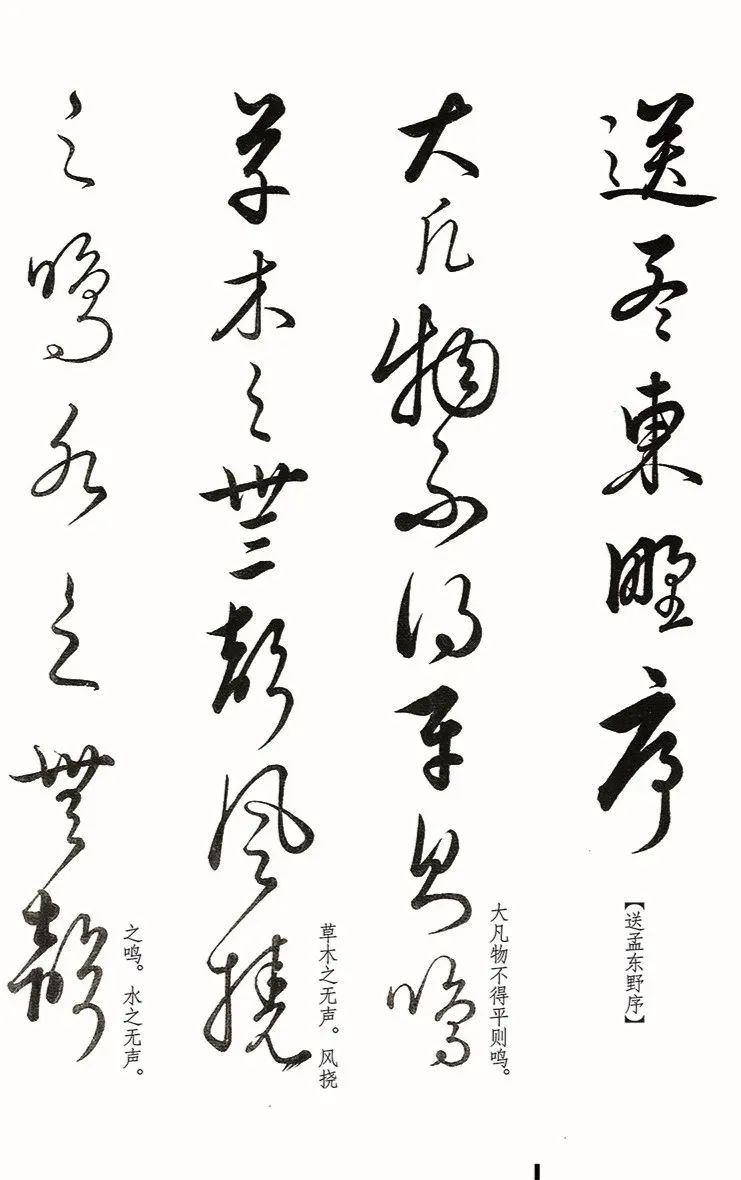 送孟東野序
【送孟东野序】
大凡物不得平則鳴
大凡物不得平则鸣。
草木之無聲風撓
草木之无声。风挠
之鳴水之無聲
之鸣。水之无声。